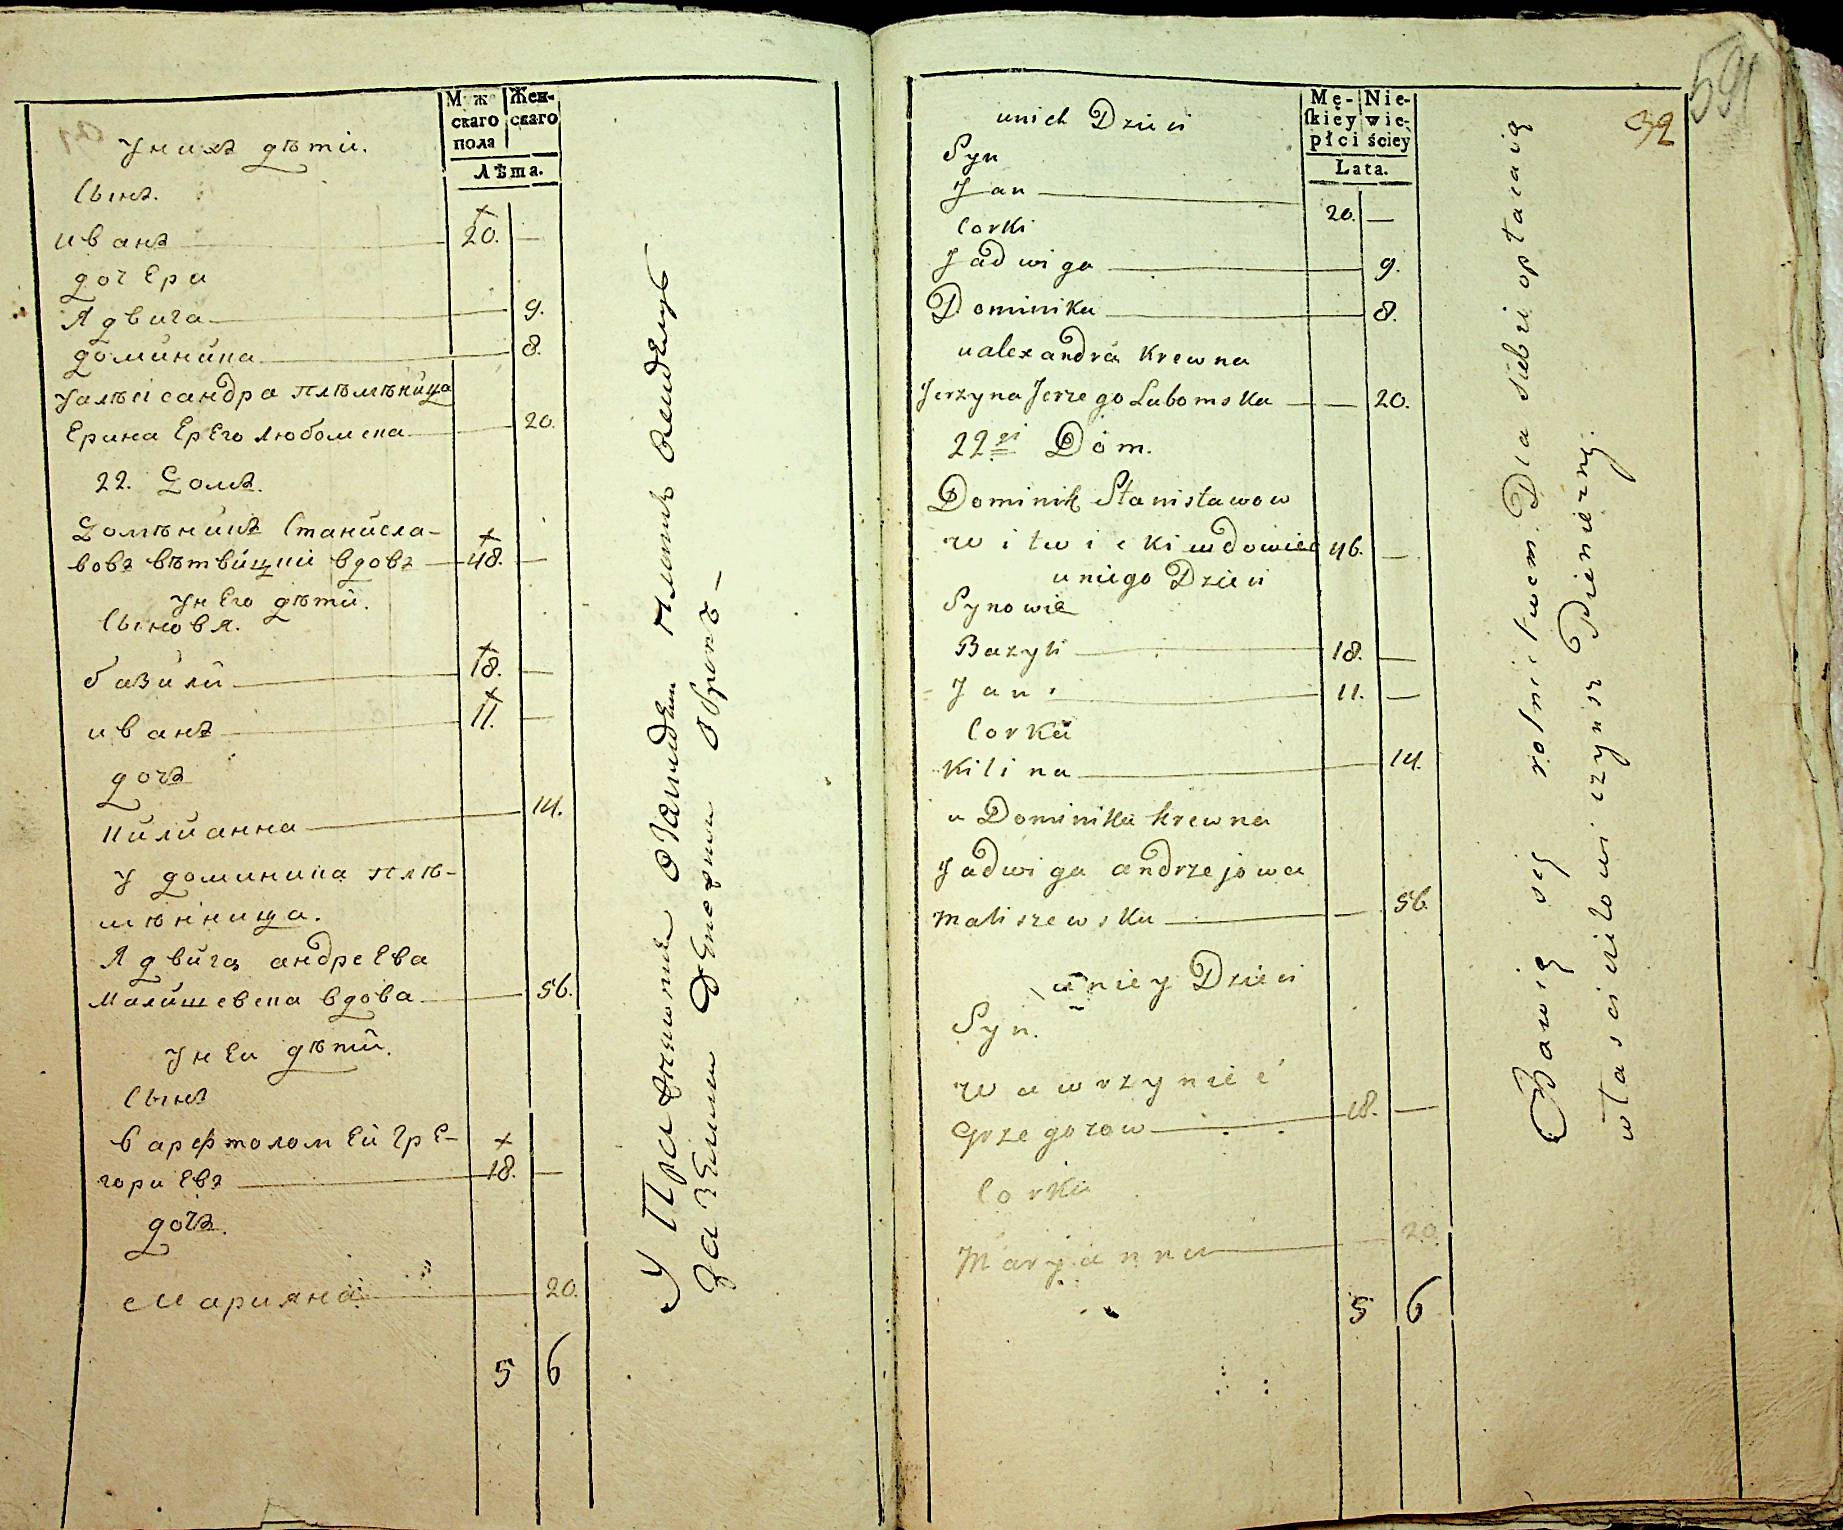 Мужескаго пола
Женскаго
Лѣта.
У нихъ дѣти.
Сынъ.
иванъ 20. —
дочери
Ядвига 9.
доминика 8.
У алѣксандра племѣница
Ерина Ерего Любомска 20.
22. Домъ.
Домѣникъ Станисла-
вовъ вѣтвицкий вдовъ 48. —
У него дѣти.
Сыновя.
базили 18. —
иванъ 11. —
дочь
Килианна 14.
У доминика плѣ-
мѣнница.
Ядвига андреева
Малишевска вдова 56.
У неи дѣти.
Сынъ
варфтоломей гре-
гориевъ 18. —
дочь.
Марияна 20.
5 6
Męskiey płci
Niewieściey
Lata.
591
32
u nich Dzieci
Syn
Jan 20. —
Corki
Jadwiga 9.
Dominika 8.
u alexandra Krewna
Jerzyna Jerzego Lubomska 20.
22gi Dom.
Dominik Stanisławow
Witwicki wdowiec 46. —
u niego Dzieci
Synowie
Bazyli 18. —
Jan 11. —
Corka
Kilina 14.
u Dominika krewna
Jadwiga andrzejowa
Maliszewska — 56.
u niey Dzieci
Syn.
Wawrzyniec
Grzegorow 18. —
Corka
Maryanna 20.
5 6
Bawią się rolnictwem Dla siebie opłacaią
włascicielowi czynsz Pieniężny.